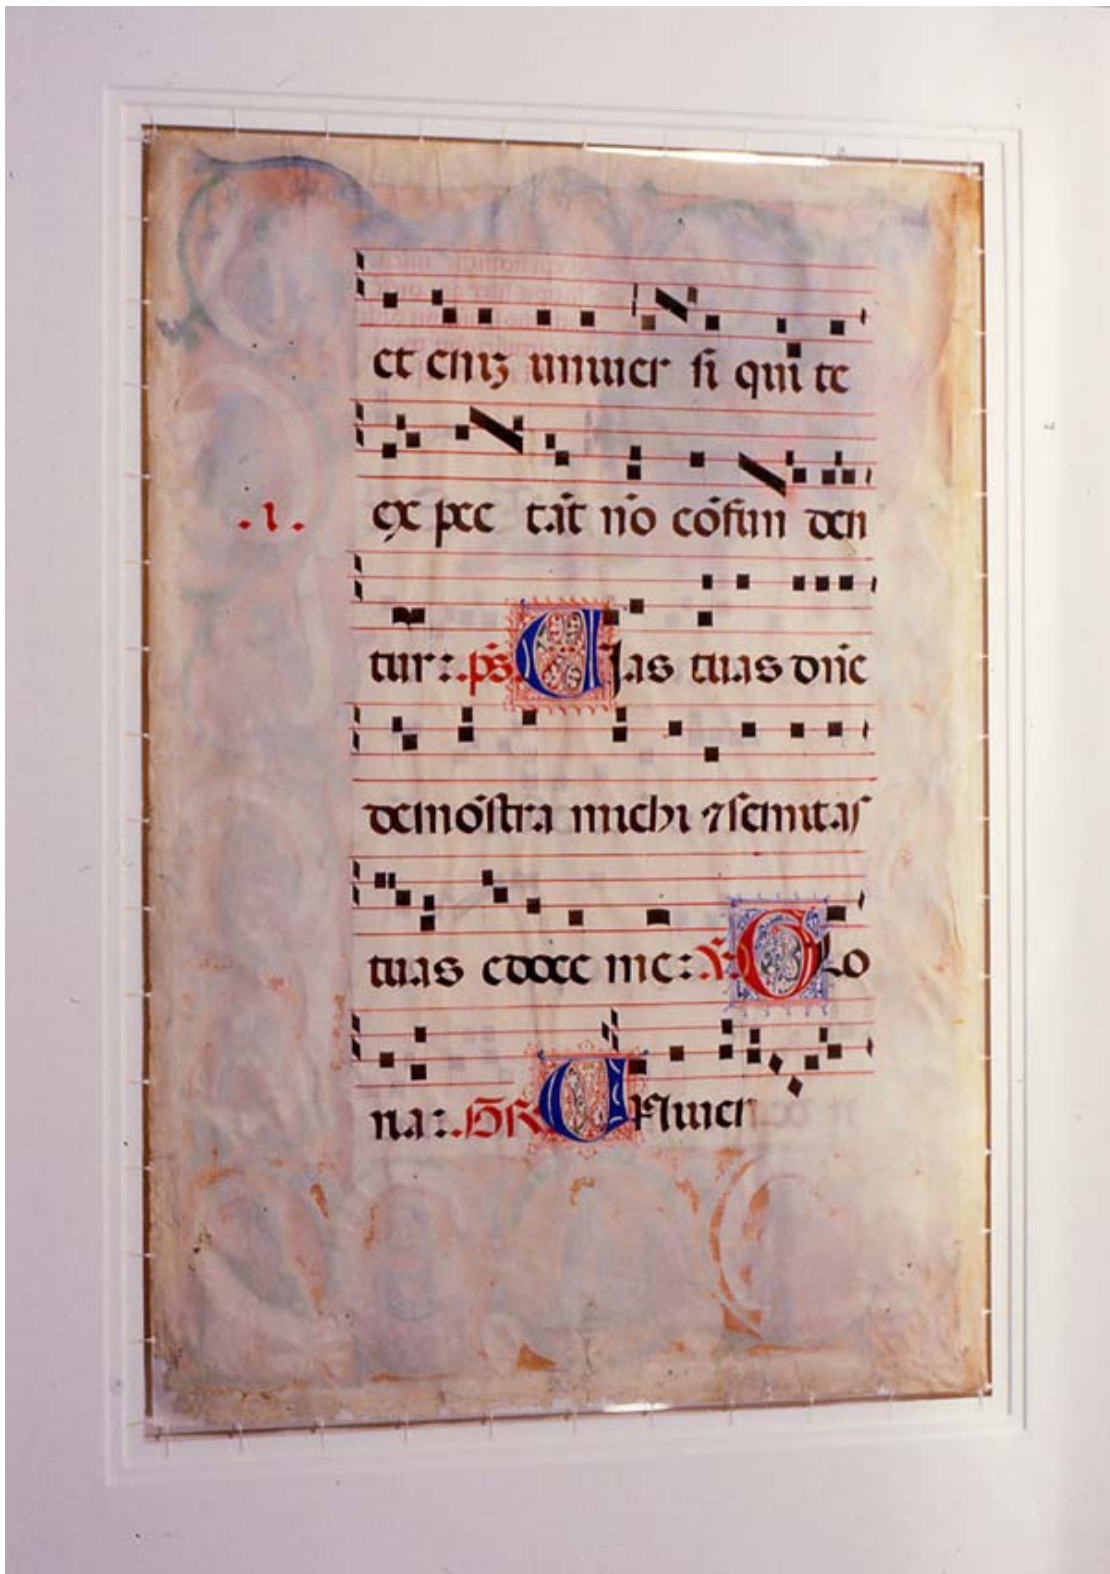 et eniʒ univer si qui te
ex pec tāt nō cōfun den
tur: ps Vias tuas dn̄e
demōstra michi ⁊ semitas
.i.
tuas edoce me: ℣ Glo
ria: GR Univer